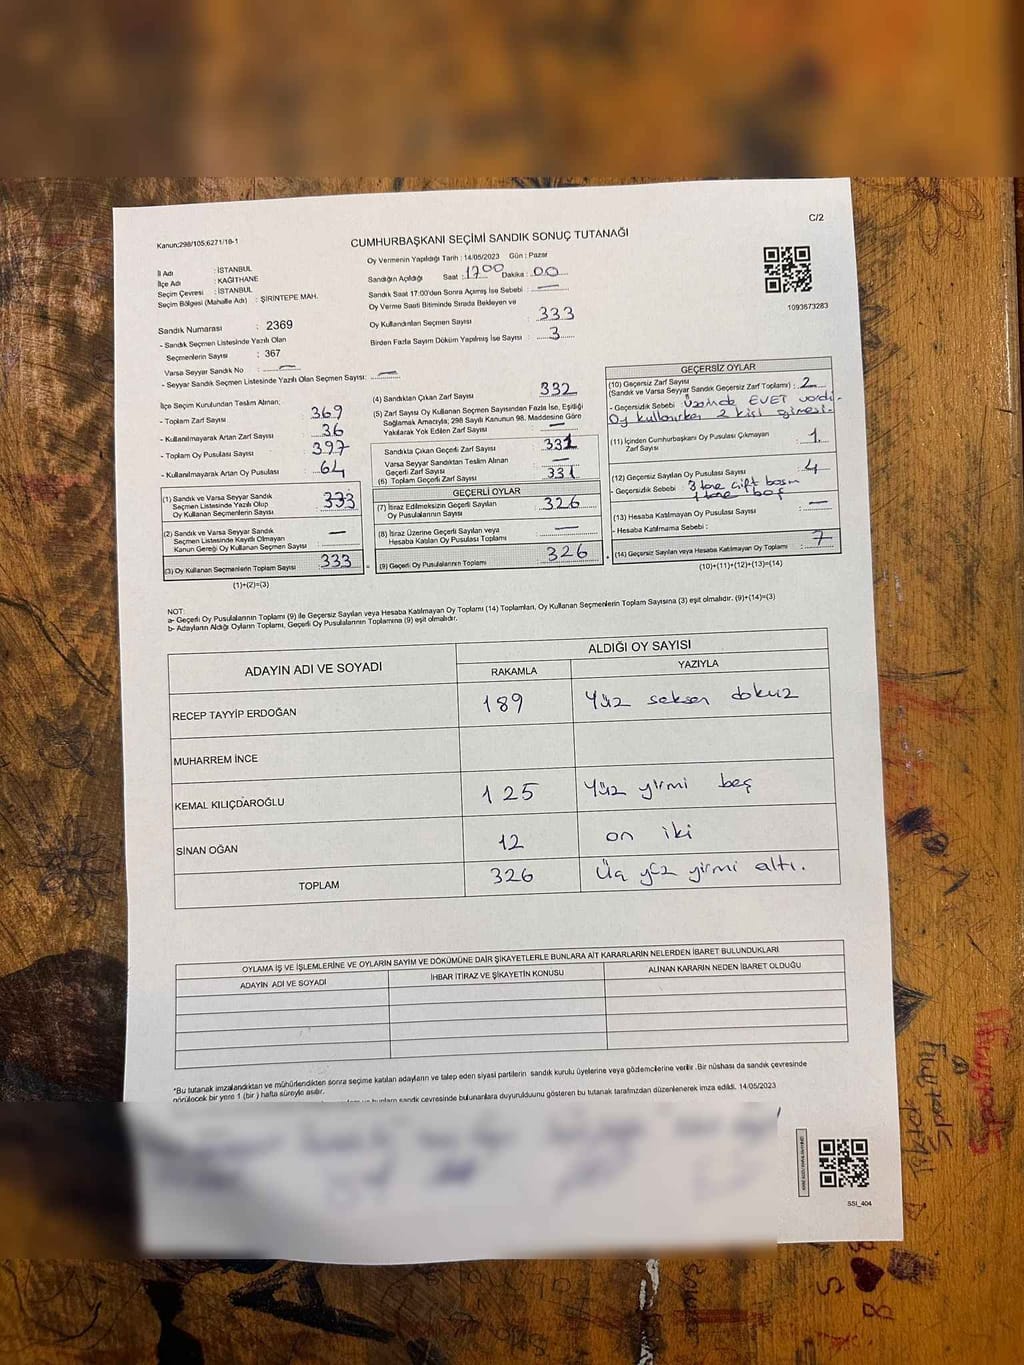 C/2
Kanun:298/105;6271/18-1
CUMHURBAŞKANI SEÇİMİ SANDIK SONUÇ TUTANAĞI
İl Adı : İSTANBUL
İlçe Adı : KAĞITHANE
Seçim Çevresi : İSTANBUL
Seçim Bölgesi (Mahalle Adı) : ŞİRİNTEPE MAH.
Oy Vermenin Yapıldığı Tarih : 14/05/2023 Gün : Pazar
Sandığın Açıldığı Saat : 17.00 Dakika : 00
Sandık Saat 17:00'den Sonra Açılmış İse Sebebi : —
Oy Verme Saati Bitiminde Sırada Bekleyen ve
Oy Kullandırılan Seçmen Sayısı : 333
Birden Fazla Sayım Döküm Yapılmış İse Sayısı : 3
1093673283
Sandık Numarası : 2369
- Sandık Seçmen Listesinde Yazılı Olan
Seçmenlerin Sayısı : 367
Varsa Seyyar Sandık No : —
- Seyyar Sandık Seçmen Listesinde Yazılı Olan Seçmen Sayısı: —
İlçe Seçim Kurulundan Teslim Alınan;
- Toplam Zarf Sayısı : 369
- Kullanılmayarak Artan Zarf Sayısı : 36
- Toplam Oy Pusulası Sayısı : 397
- Kullanılmayarak Artan Oy Pusulası : 64
(1) Sandık ve Varsa Seyyar Sandık
Seçmen Listesinde Yazılı Olup
Oy Kullanan Seçmenlerin Sayısı : 333
(2) Sandık ve Varsa Seyyar Sandık
Seçmen Listesinde Kayıtlı Olmayan
Kanun Gereği Oy Kullanan Seçmen Sayısı : —
(3) Oy Kullanan Seçmenlerin Toplam Sayısı : 333
(1)+(2)=(3)
(4) Sandıktan Çıkan Zarf Sayısı 332
(5) Zarf Sayısı Oy Kullanan Seçmen Sayısından Fazla İse, Eşitliği
Sağlamak Amacıyla; 298 Sayılı Kanunun 98. Maddesine Göre
Yakılarak Yok Edilen Zarf Sayısı : —
Sandıkta Çıkan Geçerli Zarf Sayısı : 331
Varsa Seyyar Sandıktan Teslim Alınan
Geçerli Zarf Sayısı : —
(6) Toplam Geçerli Zarf Sayısı : 331
GEÇERLİ OYLAR
(7) İtiraz Edilmeksizin Geçerli Sayılan
Oy Pusulalarının Sayısı : 326
(8) İtiraz Üzerine Geçerli Sayılan veya
Hesaba Katılan Oy Pusulası Toplamı : —
(9) Geçerli Oy Pusulalarının Toplamı : 326
GEÇERSİZ OYLAR
(10) Geçersiz Zarf Sayısı
(Sandık ve Varsa Seyyar Sandık Geçersiz Zarf Toplamı) : 2
- Geçersizlik Sebebi : Üzerinde EVET vardı.
Oy kullanırken 2 kişi girmesi.
(11) İçinden Cumhurbaşkanı Oy Pusulası Çıkmayan
Zarf Sayısı : 1
(12) Geçersiz Sayılan Oy Pusulası Sayısı : 4
- Geçersizlik Sebebi : 3 tane çift basım
1 tane boş
(13) Hesaba Katılmayan Oy Pusulası Sayısı : —
- Hesaba Katılmama Sebebi :
(14) Geçersiz Sayılan veya Hesaba Katılmayan Oy Toplamı : 7
(10)+(11)+(12)+(13)=(14)
NOT:
a- Geçerli Oy Pusulalarının Toplamı (9) ile Geçersiz Sayılan veya Hesaba Katılmayan Oy Toplamı (14) Toplamları, Oy Kullanan Seçmenlerin Toplam Sayısına (3) eşit olmalıdır. (9)+(14)=(3)
b- Adayların Aldığı Oyların Toplamı, Geçerli Oy Pusulalarının Toplamına (9) eşit olmalıdır.
ADAYIN ADI VE SOYADI
ALDIĞI OY SAYISI
RAKAMLA YAZIYLA
RECEP TAYYİP ERDOĞAN 189 Yüz seksen dokuz
MUHARREM İNCE
KEMAL KILIÇDAROĞLU 125 Yüz yirmi beş
SİNAN OĞAN 12 on iki
TOPLAM 326 Üç yüz yirmi altı.
OYLAMA İŞ VE İŞLEMLERİNE VE OYLARIN SAYIM VE DÖKÜMÜNE DAİR ŞİKAYETLERLE BUNLARA AİT KARARLARIN NELERDEN İBARET BULUNDUKLARI
ADAYIN ADI VE SOYADI İHBAR İTİRAZ VE ŞİKAYETİN KONUSU ALINAN KARARIN NEDEN İBARET OLDUĞU
*Bu tutanak imzalandıktan ve mühürlendikten sonra seçime katılan adayların ve talep eden siyasi partilerin sandık kurulu üyelerine veya gözlemcilerine verilir .Bir nüshası da sandık çevresinde
görülecek bir yere 1 (bir ) hafta süreyle asılır.
sandık çevresinde bulunanlara duyurulduunu gösteren bu tutanak tarafımızdan düzenlenerek imza edildi. 14/05/2023
SSI_404